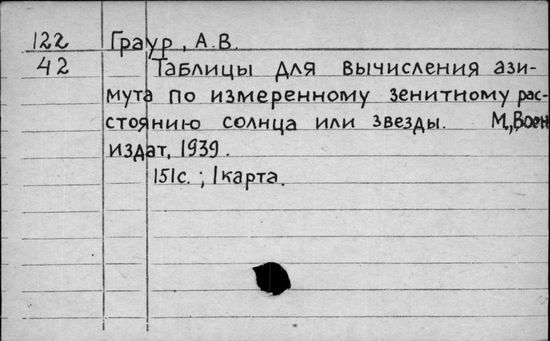 122 Граур, А.В.
42 Таблицы для вычисления ази-
мута по измеренному зенитному рас-
стоянию солнца или звезды. М., Воен
издат, 1939.
151с. ; 1 карта.